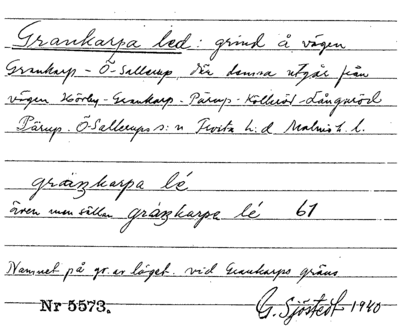 Grankarpa led: grind å vägen
Grankarp - Ö-Sallerup, där denna utgår från
vägen Hörby - Grankarp - Pärup - Killeröd - Långaröd
Pärup. Ö-Sallerups s:n Frosta h.d Malmöh. l.
även men sällan 61
Namnet på gr. av läget vid Grankarps gräns
Nr 5573. G. Sjöstedt 1940